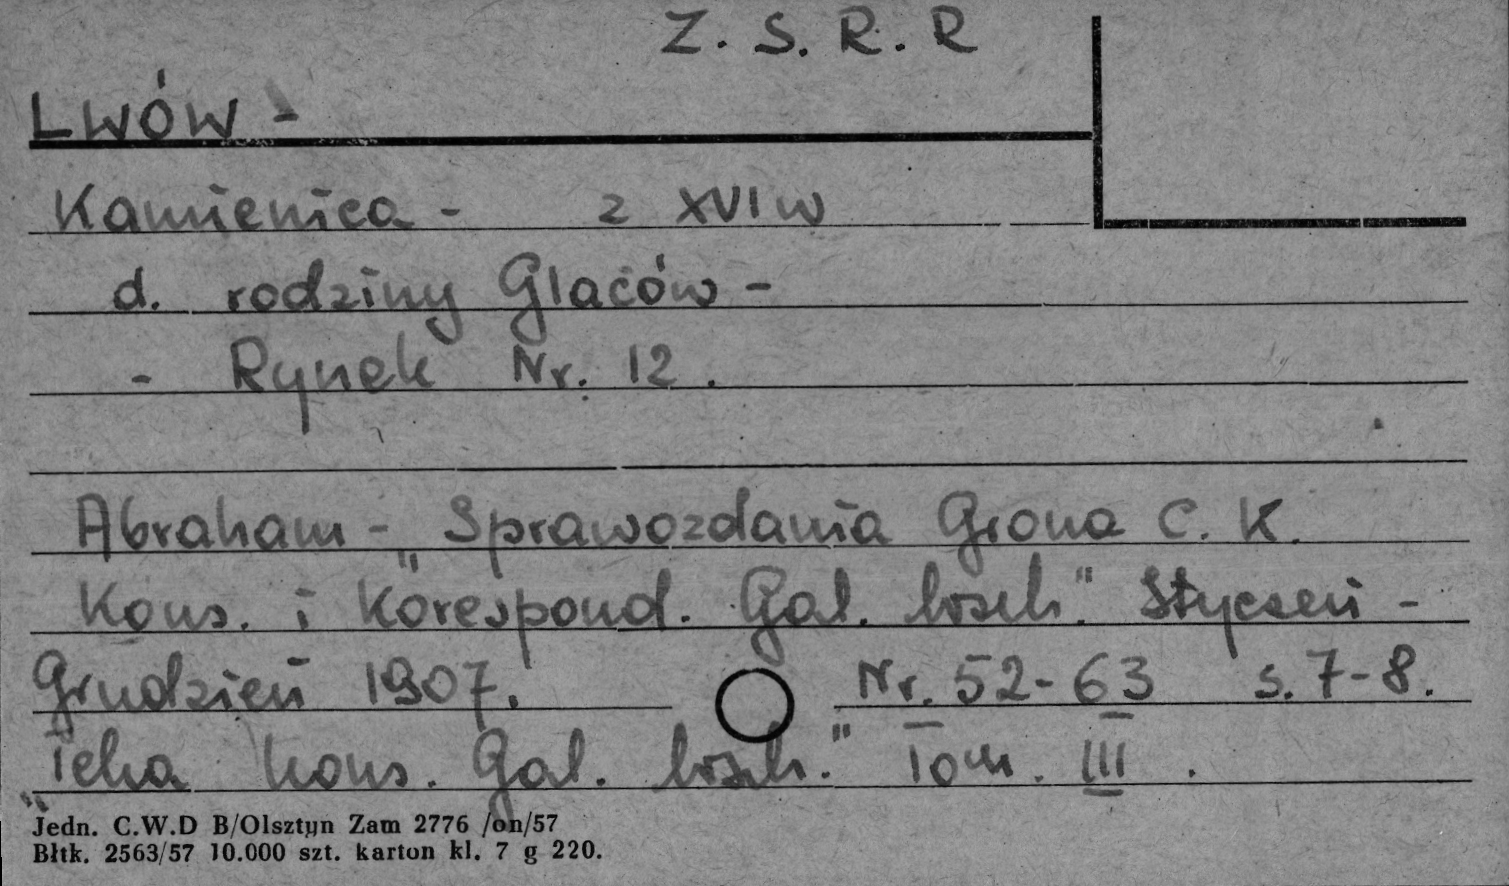 Z. S. R. R
LWÓW -
Kamienica - z XVI w
d. rodziny Glaców -
- Rynek Nr. 12.
Abraham - „Sprawozdania Grona C. K.
Kons. i Korespond. Gal. wsch." Styczeń -
Grudzień 1907. Nr. 52-63 s. 7-8.
„Teka kons. Gal. wsch." Tom. III.
Jedn. C.W.D B/Olsztyn Zam 2776 /on/57
Błtk. 2563/57 10.000 szt. karton kl. 7 g 220.